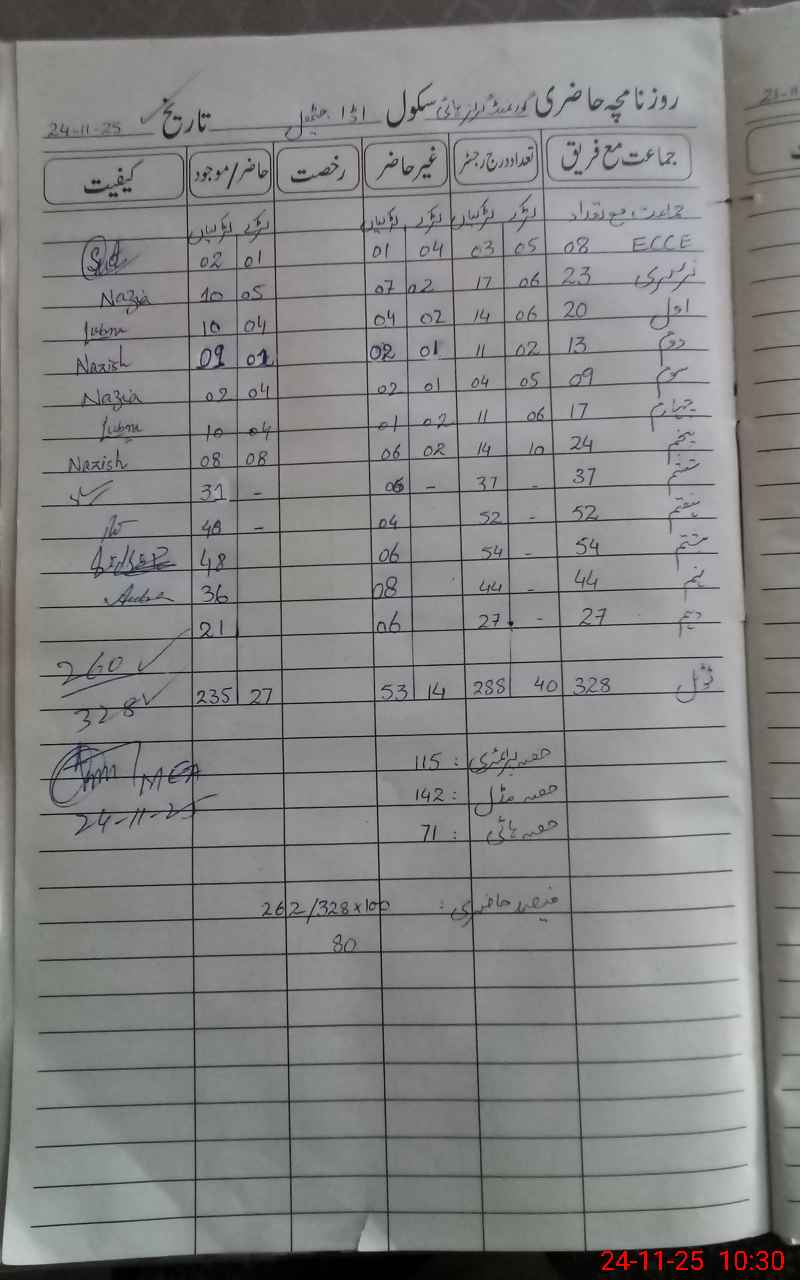 روزنامچہ حاضری گورنمنٹ گرلز ہائی سکول اڈا تاریخ 24-11-25
جماعت مع فریق تعداد درج رجسٹر غیر حاضر رخصت حاضر/موجود کیفیت
جماعت مع تعداد لڑکے لڑکیاں لڑکے لڑکیاں لڑکے لڑکیاں
ECCE 08 05 03 04 01 01 02
نرسری 23 06 17 02 07 05 10 Nazia
اول 20 06 14 02 04 04 10 Lubna
دوم 13 02 11 01 02 01 09 Nazish
سوم 09 05 04 01 02 04 02 Nazia
چہارم 17 06 11 02 01 04 10 Lubna
پنجم 24 10 14 02 06 08 08 Nazish
ششم 37 - 37 - 06 - 31
ہفتم 52 - 52 04 - 48
ہشتم 54 - 54 06 48
نہم 44 - 44 08 36
دہم 27 - 27 06 21
260
ٹوٹل 328 40 288 14 53 27 235
328
حصہ پرائمری : 115
MEA
حصہ مڈل : 142
24-11-25
حصہ ہائی : 71
فیصد حاضری : 262/328x100
80
24-11-25 10:30